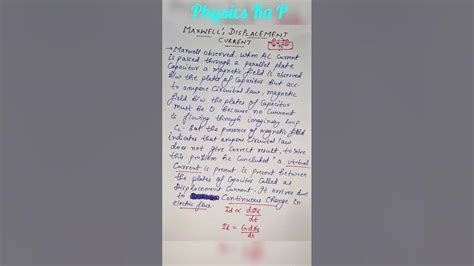 Physics Ka P
MAXWELL'S DISPLACEMENT
CURRENT
→ Maxwell observed, when AC current
is passed through a parallel plate
Capacitor a magnetic field is observed
b/w the plates of capacitor but acc
to ampere circuital law, magnetic
field b/w the plates of Capacitor
must be 0 because no current
is flowing through imaginary loop
C₁. But the presence of magnetic field
indicates that ampere circuital law
does not give correct result, to solve
this problem he concluded "a virtual
Current is present is present between
the plates of Capacitor called as
displacement current. It arrives due
to Continuous change in
electric flux.
Id ∝ dϕE/dt
Id = ϵ₀dϕE/dt